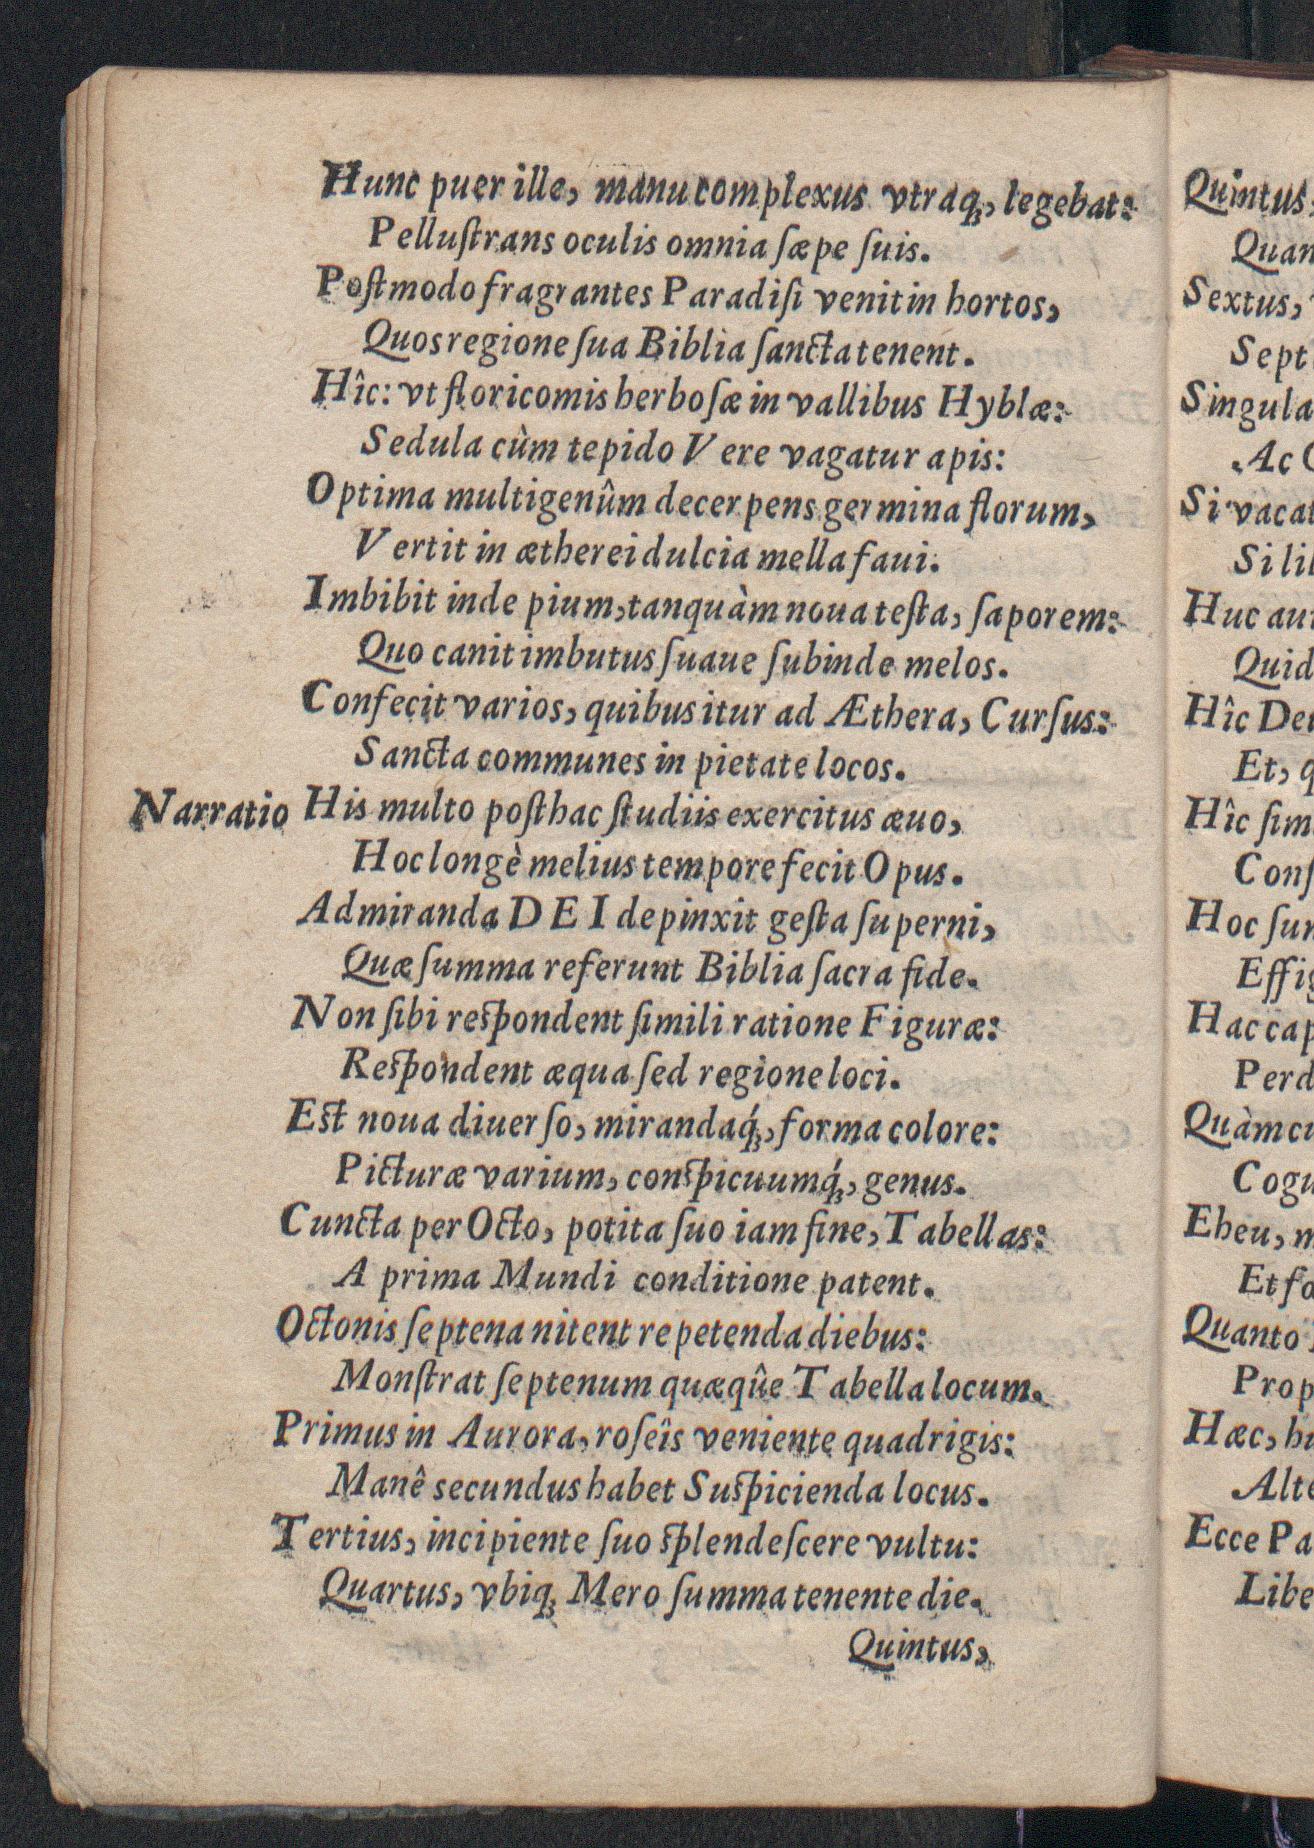 Hunc puer ille, manu complexus vtraq́ꝫ, legebat:
Pelluſtrans oculis omnia ſæpe ſuis.
Poſtmodo fragrantes Paradiſi venit in hortos,
Quos regione ſua Biblia ſancta tenent.
Hîc: vt floricomis herboſæ in vallibus Hyblæ:
Sedula cùm tepido Vere vagatur apis:
Optima multigenûm decerpens germina florum,
Vertit in ætherei dulcia mella faui.
Imbibit inde pium, tanquàm noua teſta, ſaporem:
Quo canit imbutus ſuaue ſubinde melos.
Confecit varios, quibus itur ad Æthera, Curſus:
Sancta communes in pietate locos.
Narratio His multo poſthac ſtudiis exercitus æuo,
Hoc longè melius tempore fecit Opus.
Admiranda DEI depinxit geſta ſuperni,
Quæ ſumma referunt Biblia ſacra fide.
Non ſibi reſpondent ſimili ratione Figuræ:
Reſpondent æqua ſed regione loci.
Eſt noua diuerſo, mirandaq́ꝫ, forma colore:
Picturæ varium, conſpicuumq́ꝫ, genus.
Cuncta per Octo, potita ſuo iam fine, Tabellas:
A prima Mundi conditione patent.
Octonis ſeptena nitent repetenda diebus:
Monſtrat ſeptenum quæqûe Tabella locum.
Primus in Aurora, roſeîs veniente quadrigis:
Manê secundus habet Suſpicienda locus.
Tertius, incipiente ſuo ſplendeſcere vultu:
Quartus, vbiqꝫ Mero ſumma tenente die.
Quintus,
Quintus,
Quan
Sextus,
Sept
Singula
Ac
Si vacat
Si lil
Huc aut
Quid
Hîc De
Et, q
Hîc ſim
Conſ
Hoc ſu
Effig
Hac cap
Perd
Quàm cu
Cogu
Eheu, m
Et fo
Quanto
Prop
Hæc, hi
Alte
Ecce Pa
Libe